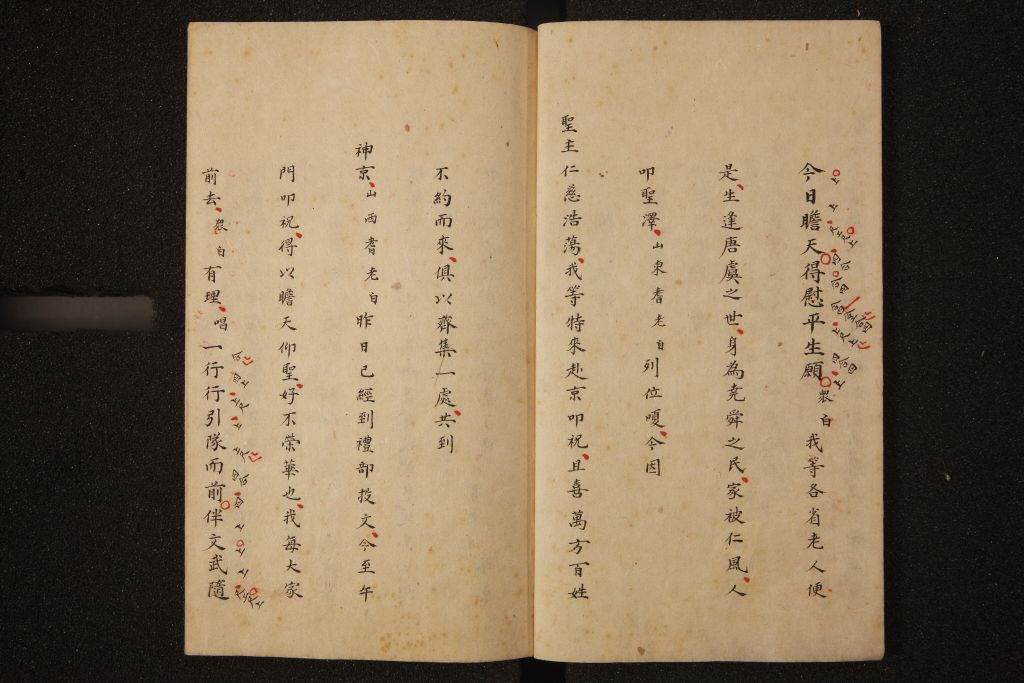 今日瞻天得慰平生願衆白我等各省老人便
是生逢唐虞之世身為堯舜之民家被仁風人
叩聖澤山東耆老白列位嗄今因
聖主仁慈浩蕩我等特來赴京叩祝且喜萬方百姓
不約而來俱以齊集一處共到
神京山西耆老白昨日已經到禮部投文今至午
門叩祝得以瞻天仰聖好不榮華也我每大家
前去衆白有理唱一行行引隊而前伴文武隨